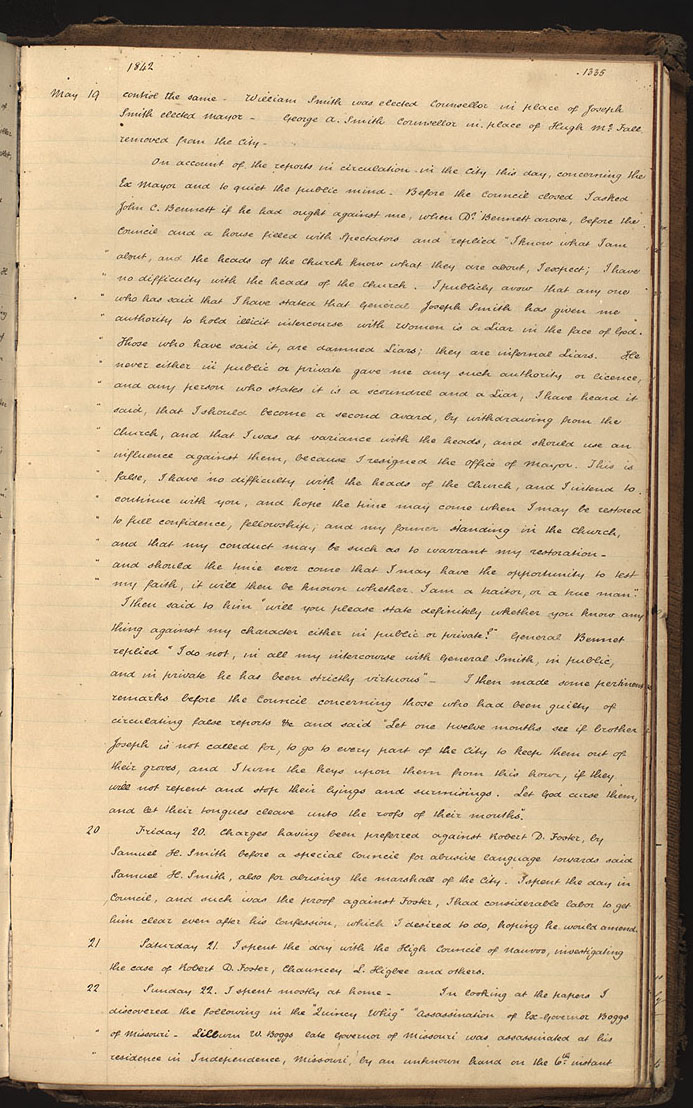 1842
1335
May 19 control the same - William Smith was elected Counsellor in place of Joseph
Smith elected Mayor - George A. Smith Counsellor in place of Hugh Mc. Fall
removed from the City -
On account of the reports in circulation in the City this day, concerning the
Ex Mayor and to quiet the public mind. Before the Council closed I asked
John C. Bennett if he had ought against me, when Dr. Bennett arose, before the
Council and a house filled with Spectators and replied "I know what I am
" about, and the heads of the Church know what they are about, I expect; I have
" no difficulty with the heads of the Church. I publicly avow that any one
" who has said that I have stated that General Joseph Smith has given me
" authority to hold illicit intercourse with Women is a Liar in the face of God.
" Those who have said it, are damned Liars; they are infernal Liars. He
" never either in public or private gave me any such authority or licence,
" and any person who states it is a scoundrel and a Liar, I have heard it
" said, that I should become a second Avard, by withdrawing from the
" Church, and that I was at variance with the heads, and should use an
" influence against them, because I resigned the office of Mayor. This is
" false, I have no difficulty with the heads of the Church, and I intend to
" continue with you, and hope the time may come when I may be restored
" to full confidence, fellowship, and my former standing in the Church,
" and that my conduct may be such as to warrant my restoration -
" and should the time ever come that I may have the opportunity to test
" my faith, it will then be known whether I am a traitor, or a true man".
I then said to him "will you please state definitely whether you know any
thing against my character either in public or private?" General Bennet
replied "I do not, in all my intercourse with General Smith, in public,
and in private he has been strictly virtuous" - I then made some pertinent
remarks before the Council concerning those who had been guilty of
circulating false reports &c and said "Let one twelve months see if brother
Joseph is not called for, to go to every part of the City to keep them out of
their groves, and I turn the keys upon them from this hour, if they
will not repent and stop their lyings and surmisings. Let God curse them,
and let their tongues cleave unto the roofs of their mouths".
20 Friday 20. Charges having been preferred against Robert D. Foster, by
Samuel H. Smith before a special Council for abusive language towards said
Samuel H. Smith, also for abusing the marshall of the City. I spent the day in
Council, and such was the proof against Foster, I had considerable labor to get
him clear even after his Confession, which I desired to do, hoping he would amend.
21 Saturday 21. I spent the day with the High Council of Nauvoo, investigating
the case of Robert D. Foster, Chauncey L. Higbee and others.
22 Sunday 22. I spent mostly at home - In looking at the papers I
discovered the following in the "Quincy Whig" "Assassination of Ex-Governor Boggs
" of Missouri - Lilburn W. Boggs late Governor of Missouri was assassinated at his
" residence in Independence, Missouri, by an unknown hand on the 6th. instant